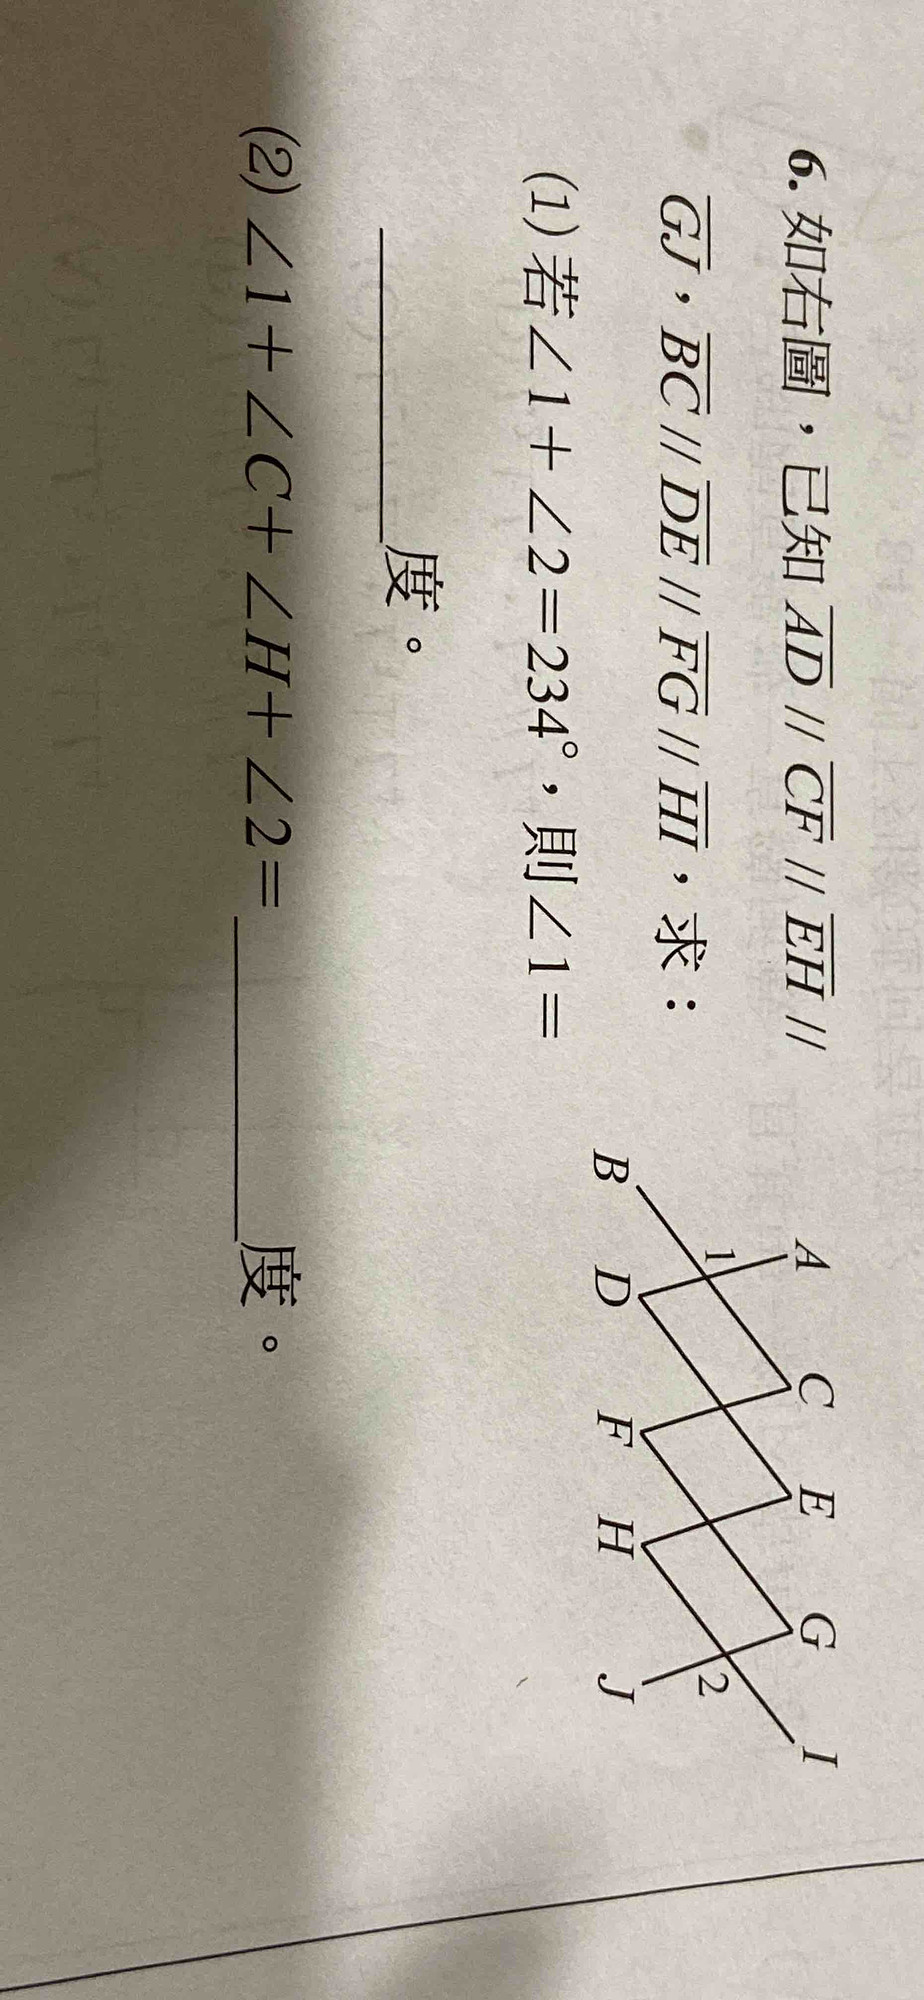 6. 如右圖，已知 AD // CF // EH //
GJ，BC // DE // FG // HI，求：
(1) 若∠1＋∠2＝234°，則∠1＝
＿＿＿＿度。
(2) ∠1＋∠C＋∠H＋∠2＝＿＿＿＿度。
A
C
E
G
I
1
2
B
D
F
H
J